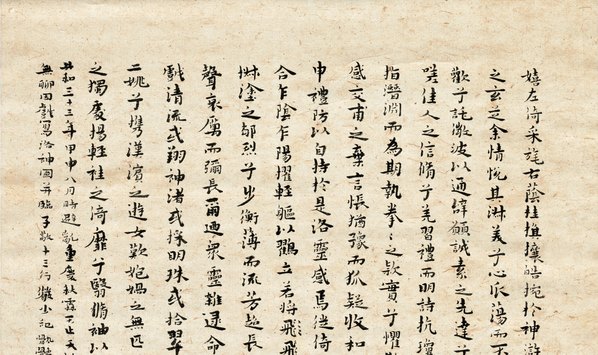 嬉左倚采旄右蔭桂旗攘皓捥於神滸
之玄芝余情悅其淑美兮心振蕩而不
歡兮託微波以通辭願誠素之先達兮
嗟佳人之信脩兮羌習禮而明詩抗瓊
指潛淵而為期執拳々之款實兮懼
感交甫之棄言悵猶豫而狐疑收和
申禮防以自持於是洛靈感焉徙倚
合乍陰乍陽擢輕軀以鶴立若將飛飛
椒塗之郁烈兮步衡薄而流芳超長
聲哀厲而彌長爾迺衆靈雜遝命
戲清流或翔神渚或採明珠或拾翠
二姚兮攜漢濱之遊女歎匏媧之無匹
之獨處揚輕袿之倚靡兮翳脩袖以
共和三十三年甲申八月時避亂重慶秋霖不止天
無聊因戲寫洛神圖并臨子敬十三行小記